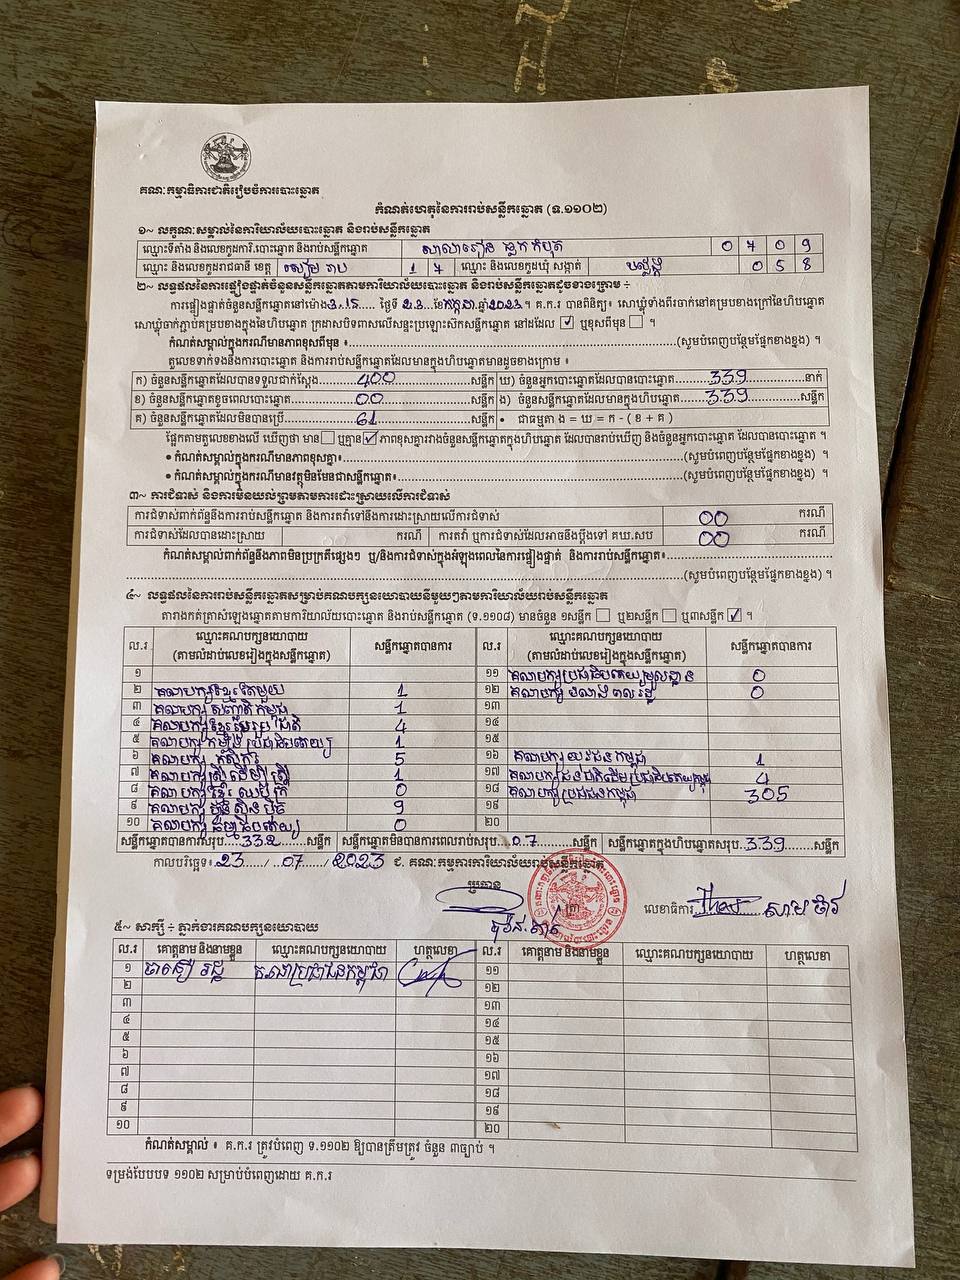 គណៈកម្មាធិការជាតិរៀបចំការបោះឆ្នោត
កំណត់ហេតុនៃការរាប់សន្លឹកឆ្នោត (ទ.១១០២)
១~ លក្ខណៈសម្គាល់នៃការិយាល័យបោះឆ្នោត និងរាប់សន្លឹកឆ្នោត
ឈ្មោះទីតាំង និងលេខកូដការិ.បោះឆ្នោត និងរាប់សន្លឹកឆ្នោត សាលារៀន 0 7 0 9
ឈ្មោះ និងលេខកូដរាជធានី ខេត្ត សៀមរាប 1 7 ឈ្មោះ និងលេខកូដឃុំ សង្កាត់ 0 5 8
២~ លទ្ធផលនៃការផ្ទៀងផ្ទាត់ចំនួនសន្លឹកឆ្នោតតាមការិយាល័យបោះឆ្នោត និងរាប់សន្លឹកឆ្នោតដូចខាងក្រោម ÷
ការផ្ទៀងផ្ទាត់ចំនួនសន្លឹកឆ្នោតនៅម៉ោង 3:15 ថ្ងៃទី 23 ខែ កក្កដា ឆ្នាំ 2023 ។ គ.ក.រ បានពិនិត្យ៖ សោឃ្លុំទាំងពីរចាក់នៅគម្របខាងក្រៅនៃហិបឆ្នោត
សោឃ្លុំចាក់ភ្ជាប់គម្របខាងក្នុងនៃហិបឆ្នោត ក្រដាសបិទពាសលើសន្ទះប្រឡោះស៊កសន្លឹកឆ្នោត នៅដដែល ☑ ឬខុសពីមុន ☐ ។
កំណត់សម្គាល់ក្នុងករណីមានភាពខុសពីមុន ៖ (សូមបំពេញបន្ថែមផ្នែកខាងខ្នង) ។
តួលេខទាក់ទងនឹងការបោះឆ្នោត និងការរាប់សន្លឹកឆ្នោតដែលមានក្នុងហិបឆ្នោតមានដូចខាងក្រោម ៖
ក) ចំនួនសន្លឹកឆ្នោតដែលបានទទួលជាក់ស្តែង 400 សន្លឹក ឃ) ចំនួនអ្នកបោះឆ្នោតដែលបានបោះឆ្នោត 339 នាក់
ខ) ចំនួនសន្លឹកឆ្នោតខូចពេលបោះឆ្នោត 00 សន្លឹក ង) ចំនួនសន្លឹកឆ្នោតដែលមានក្នុងហិបឆ្នោត 339 សន្លឹក
គ) ចំនួនសន្លឹកឆ្នោតដែលមិនបានប្រើ 61 សន្លឹក • ជាធម្មតា ង = ឃ = ក - ( ខ + គ )
ផ្អែកតាមតួលេខខាងលើ ឃើញថា មាន ☐ ឬគ្មាន ☑ ភាពខុសគ្នារវាងចំនួនសន្លឹកឆ្នោតក្នុងហិបឆ្នោត ដែលបានរាប់ឃើញ និងចំនួនអ្នកបោះឆ្នោត ដែលបានបោះឆ្នោត ។
• កំណត់សម្គាល់ក្នុងករណីមានភាពខុសគ្នា៖ (សូមបំពេញបន្ថែមផ្នែកខាងខ្នង) ។
• កំណត់សម្គាល់ក្នុងករណីមានវត្ថុមិនមែនជាសន្លឹកឆ្នោត៖ (សូមបំពេញបន្ថែមផ្នែកខាងខ្នង) ។
៣~ ការជំទាស់ និងការមិនយល់ព្រមតាមការដោះស្រាយលើការជំទាស់
ការជំទាស់ពាក់ព័ន្ធនឹងការរាប់សន្លឹកឆ្នោត និងការតវ៉ាទៅនឹងការដោះស្រាយលើការជំទាស់ 00 ករណី
ការជំទាស់ដែលបានដោះស្រាយ ករណី ការតវ៉ា ឬការជំទាស់ដែលអាចនឹងប្តឹងទៅ គឃ.សប 00 ករណី
កំណត់សម្គាល់ពាក់ព័ន្ធនឹងភាពមិនប្រក្រតីផ្សេងៗ ឬ/និងការជំទាស់ក្នុងអំឡុងពេលនៃការផ្ទៀងផ្ទាត់ និងការរាប់សន្លឹកឆ្នោត៖
(សូមបំពេញបន្ថែមផ្នែកខាងខ្នង) ។
៤~ លទ្ធផលនៃការរាប់សន្លឹកឆ្នោតសម្រាប់គណបក្សនយោបាយនីមួយៗតាមការិយាល័យរាប់សន្លឹកឆ្នោត
តារាងកត់ត្រាសំឡេងឆ្នោតតាមការិយាល័យបោះឆ្នោត និងរាប់សន្លឹកឆ្នោត (ទ.១១០៨) មានចំនួន ១សន្លឹក ☐ ឬ២សន្លឹក ☐ ឬ៣សន្លឹក ☑ ។
ល.រ ឈ្មោះគណបក្សនយោបាយ (តាមលំដាប់លេខរៀងក្នុងសន្លឹកឆ្នោត) សន្លឹកឆ្នោតបានការ ល.រ ឈ្មោះគណបក្សនយោបាយ (តាមលំដាប់លេខរៀងក្នុងសន្លឹកឆ្នោត) សន្លឹកឆ្នោតបានការ
១ ១១ គណបក្សប្រជាធិបតេយ្យមូលដ្ឋាន 0
២ គណបក្សខ្មែរតែមួយ 1 ១២ គណបក្ស 0
៣ គណបក្ស សញ្ជាតិកម្ពុជា 1 ១៣
៤ គណបក្សខ្មែររួបរួមជាតិ 4 ១៤
៥ គណបក្ស កម្លាំងប្រជាធិបតេយ្យ 1 ១៥
៦ គណបក្ស កសិករ 5 ១៦ គណបក្ស យុវជនកម្ពុជា 1
៧ គណបក្សស្ត្រីដើម្បីស្ត្រី 1 ១៧ គណបក្សជនជាតិដើមប្រជាធិបតេយ្យកម្ពុជា 4
៨ គណបក្ស ខ្មែរឈប់ក្រ 0 ១៨ គណបក្សប្រជាជនកម្ពុជា 305
៩ គណបក្ស ហ៊្វុនស៊ិនប៉ិច 9 ១៩
១០ គណបក្ស ធម្មាធិបតេយ្យ 0 ២០
សន្លឹកឆ្នោតបានការសរុប 332 សន្លឹក សន្លឹកឆ្នោតមិនបានការពេលរាប់សរុប 07 សន្លឹក សន្លឹកឆ្នោតក្នុងហិបសរុប 339 សន្លឹក
កាលបរិច្ឆេទ៖ 23 / 07 / 2023 ជ. គណៈកម្មការការិយាល័យរាប់សន្លឹកឆ្នោត
ប្រធាន
លេខាធិការ
៥~ សាក្សី ÷ ភ្នាក់ងារគណបក្សនយោបាយ
ល.រ គោត្តនាម និងនាមខ្លួន ឈ្មោះគណបក្សនយោបាយ ហត្ថលេខា ល.រ គោត្តនាម និងនាមខ្លួន ឈ្មោះគណបក្សនយោបាយ ហត្ថលេខា
១ គណប្រជាជនកម្ពុជា ១១
២ ១២
៣ ១៣
៤ ១៤
៥ ១៥
៦ ១៦
៧ ១៧
៨ ១៨
៩ ១៩
១០ ២០
កំណត់សម្គាល់ ៖ គ.ក.រ ត្រូវបំពេញ ទ.១១០២ ឱ្យបានត្រឹមត្រូវ ចំនួន ៣ច្បាប់ ។
ទម្រង់បែបបទ ១១០២ សម្រាប់បំពេញដោយ គ.ក.រ